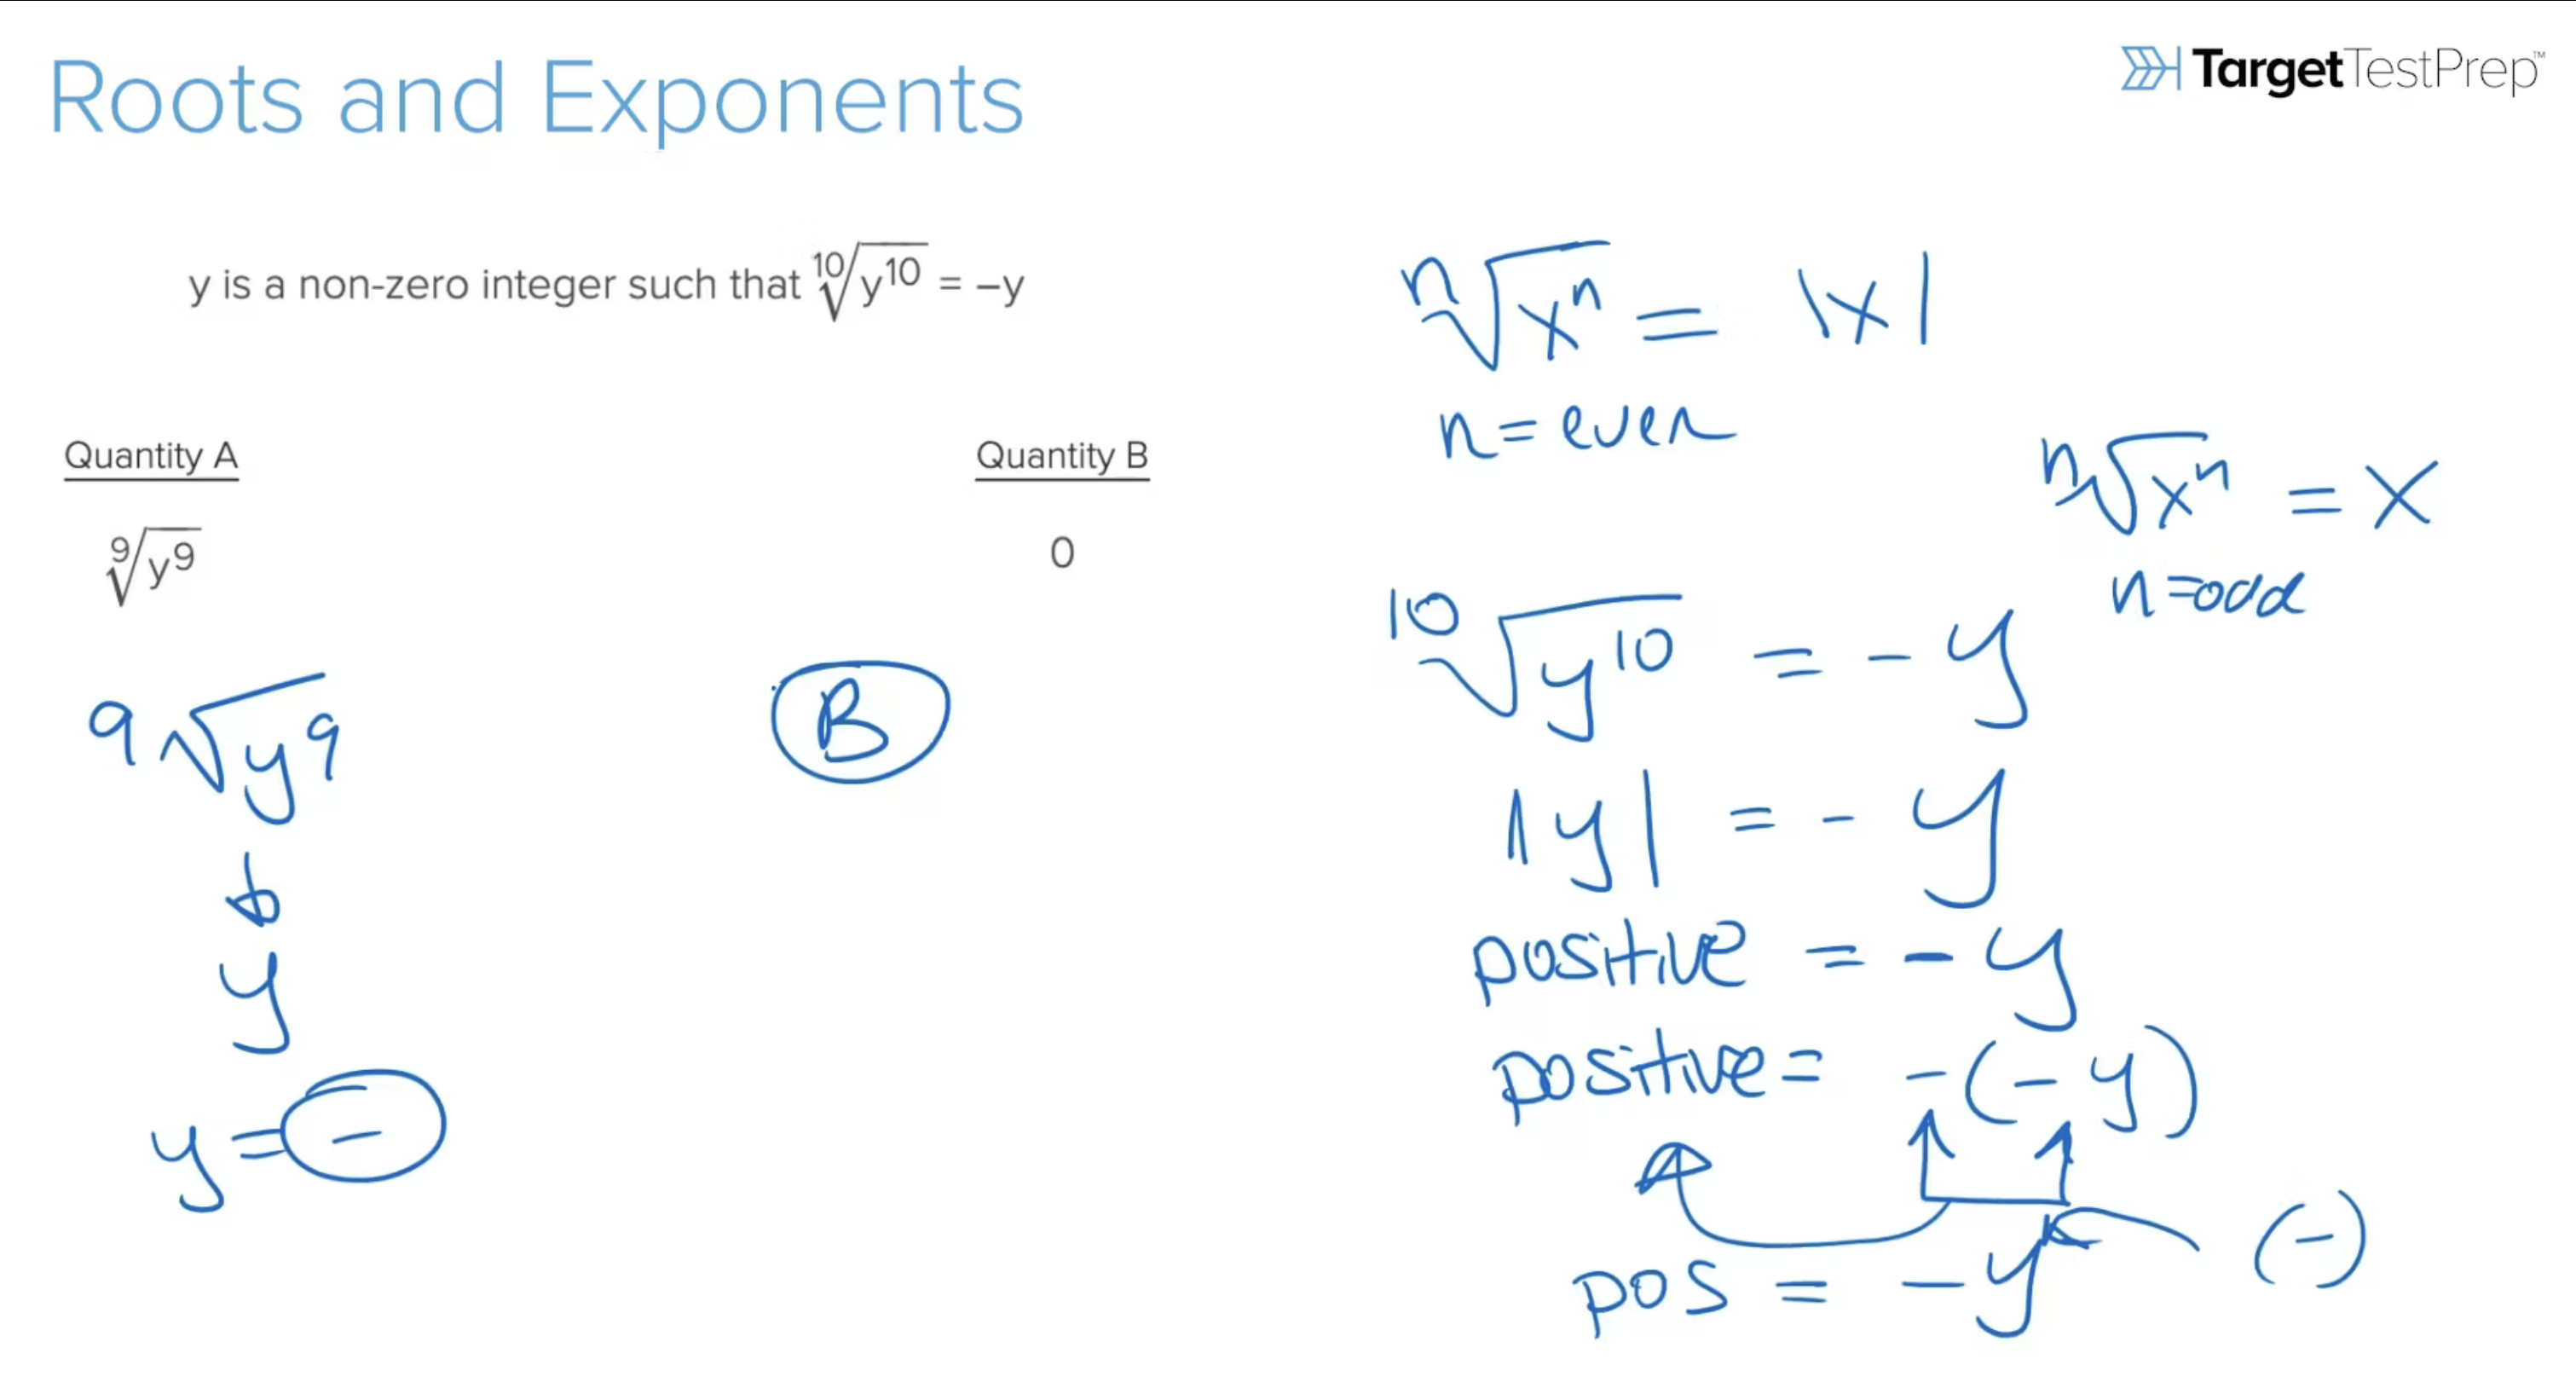 Roots and Exponents
TargetTestPrep™
y is a non-zero integer such that ¹⁰√y¹⁰ = –y
Quantity A
Quantity B
⁹√y⁹
0
⁹√y⁹
y
y = –
B
ⁿ√xⁿ = |x|
n = even
ⁿ√xⁿ = x
n = odd
¹⁰√y¹⁰ = - y
|y| = - y
positive = - y
positive = -(- y)
pos = - y
(-)